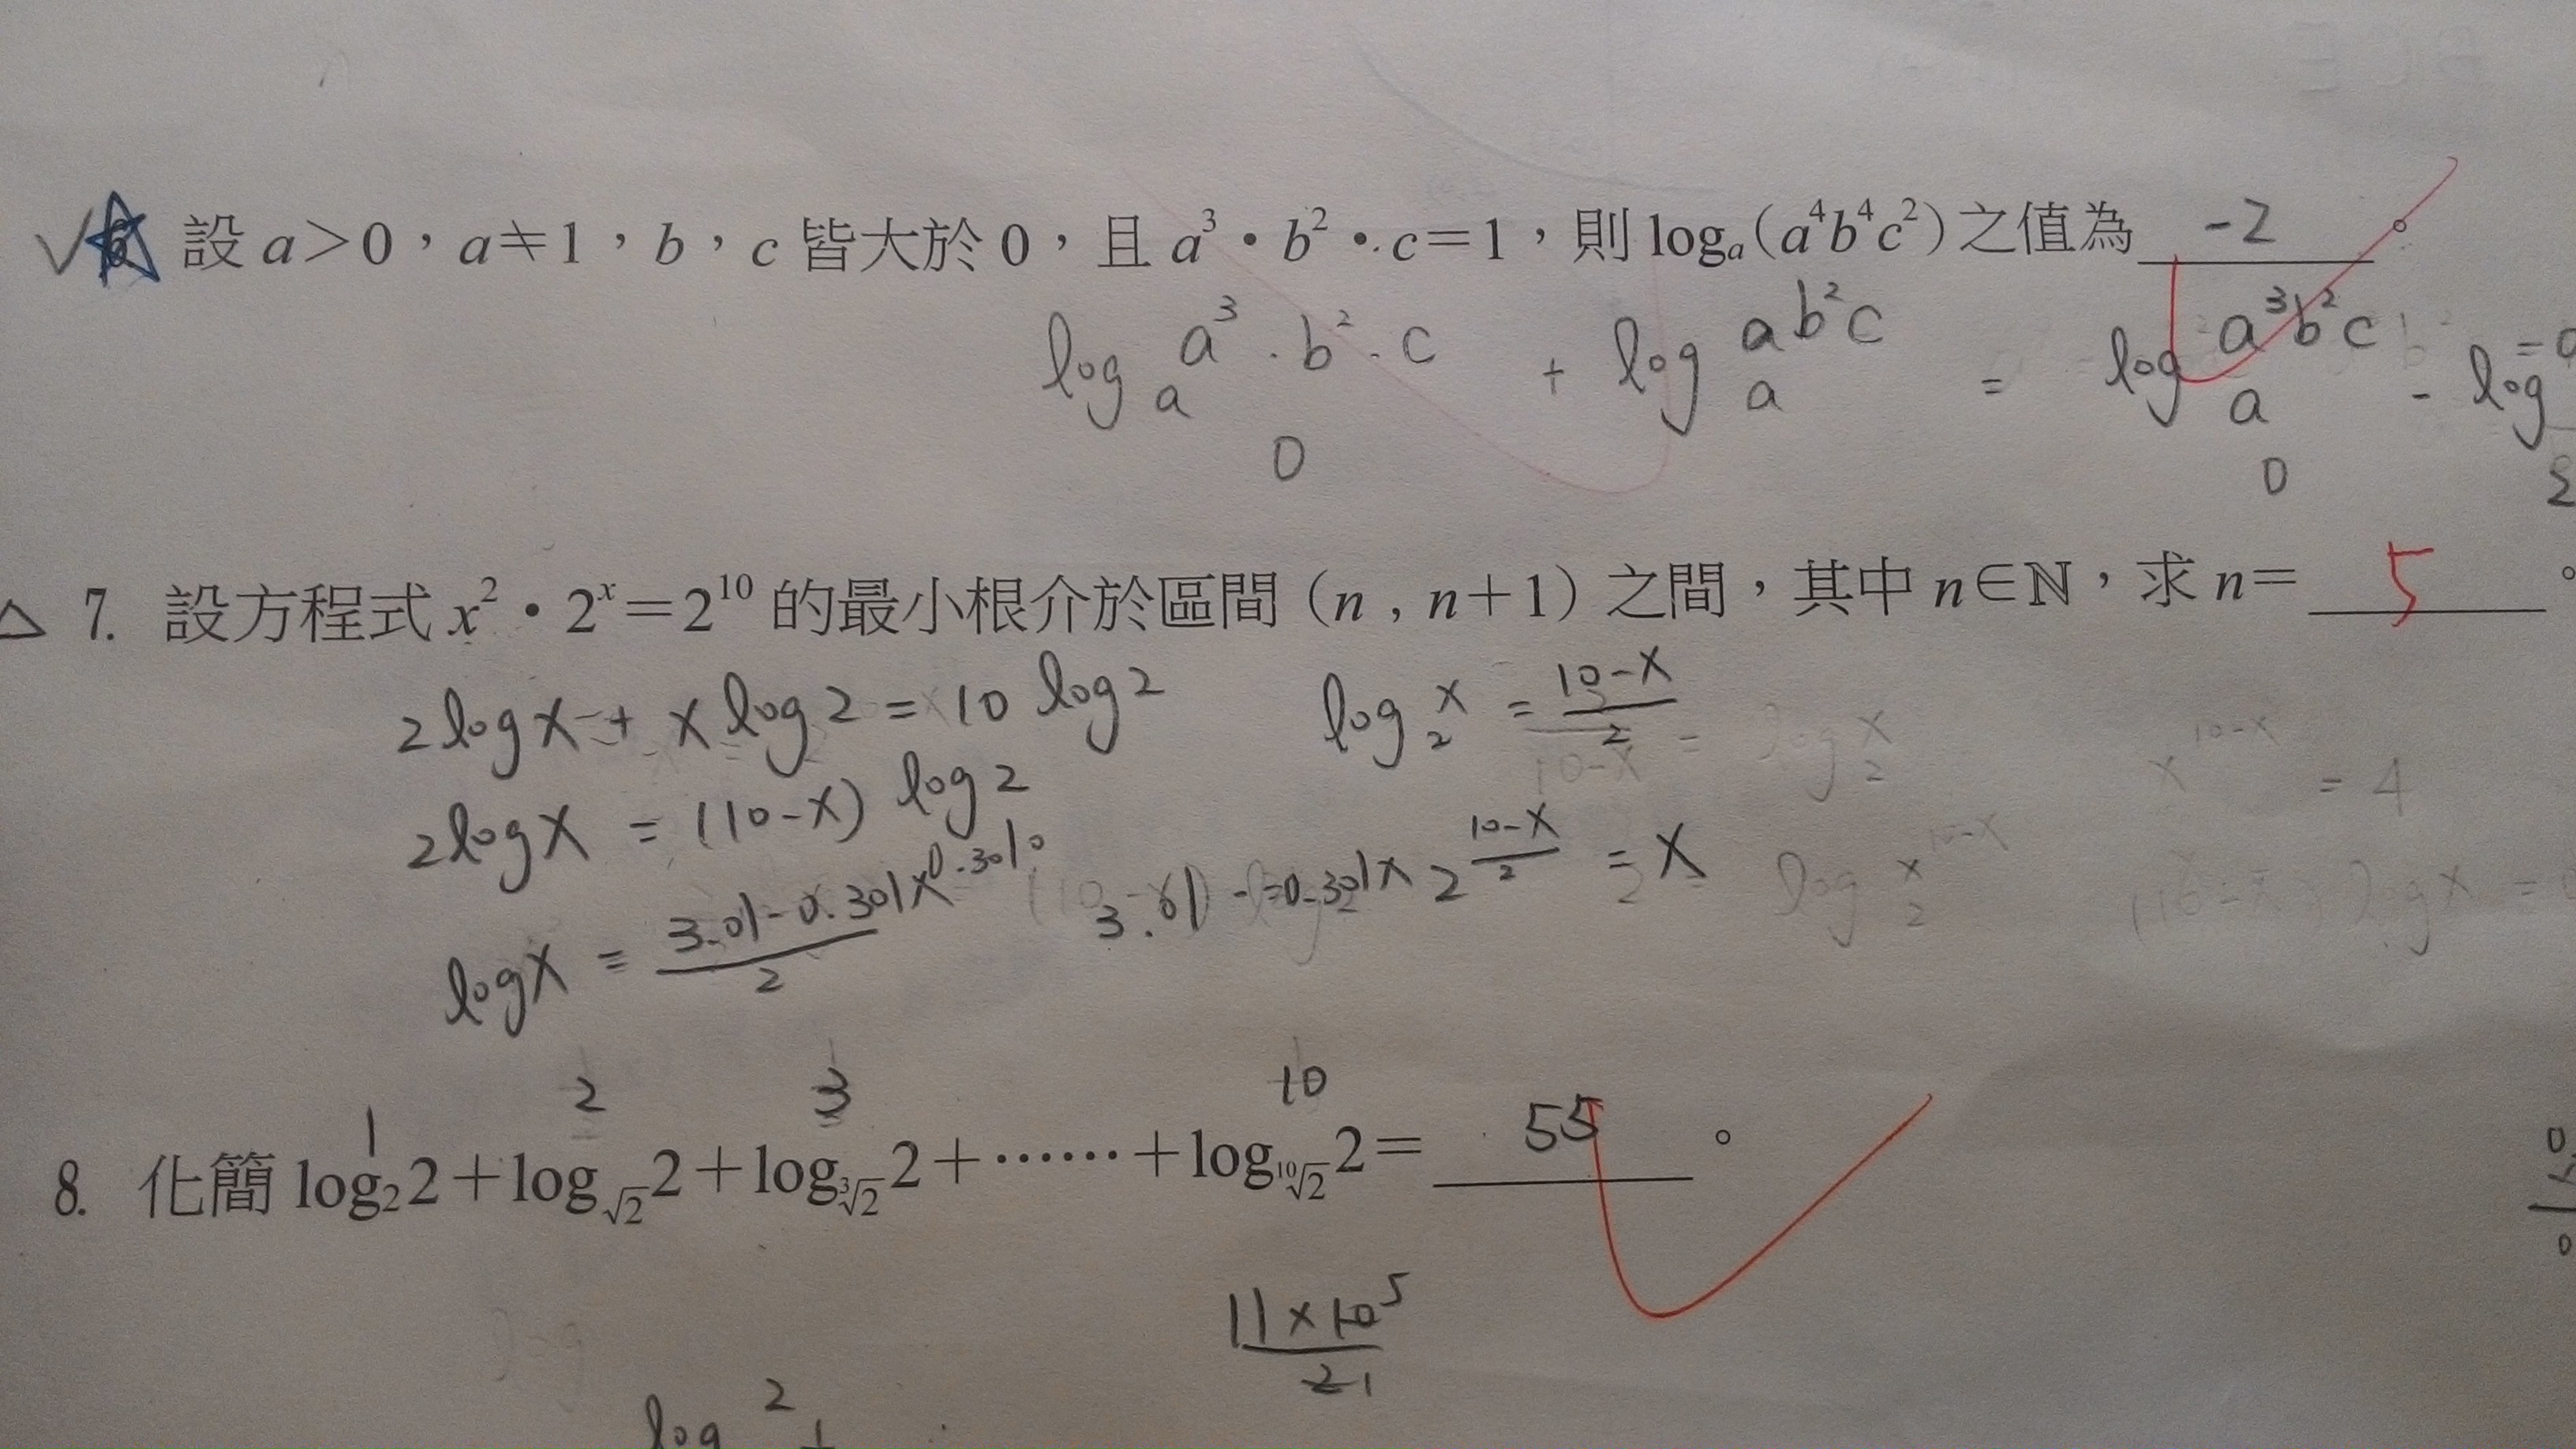 √ ☆ 6. 設 a>0，a≠1，b，c 皆大於 0，且 a³·b²·c=1，則 logₐ(a⁴b⁴c²) 之值為 -2 。
logₐ a³·b²·c + logₐ ab²c = logₐ a³b²c - log
0 0 2
△ 7. 設方程式 x²·2ˣ=2¹⁰ 的最小根介於區間 (n , n+1) 之間，其中 n∈ℕ，求 n= 5 。
2logx + x log2 = 10 log2 log₂ x = (10-x)/2
2logx = (10-x) log2
logx = (3.01-0.301x)/2 2^((10-x)/2) = x
1 2 3 10
8. 化簡 log₂2+log_√2 2+log_³√2 2+⋯⋯+log_¹⁰√2 2= 55 。
11×10 5
2 1
log 2